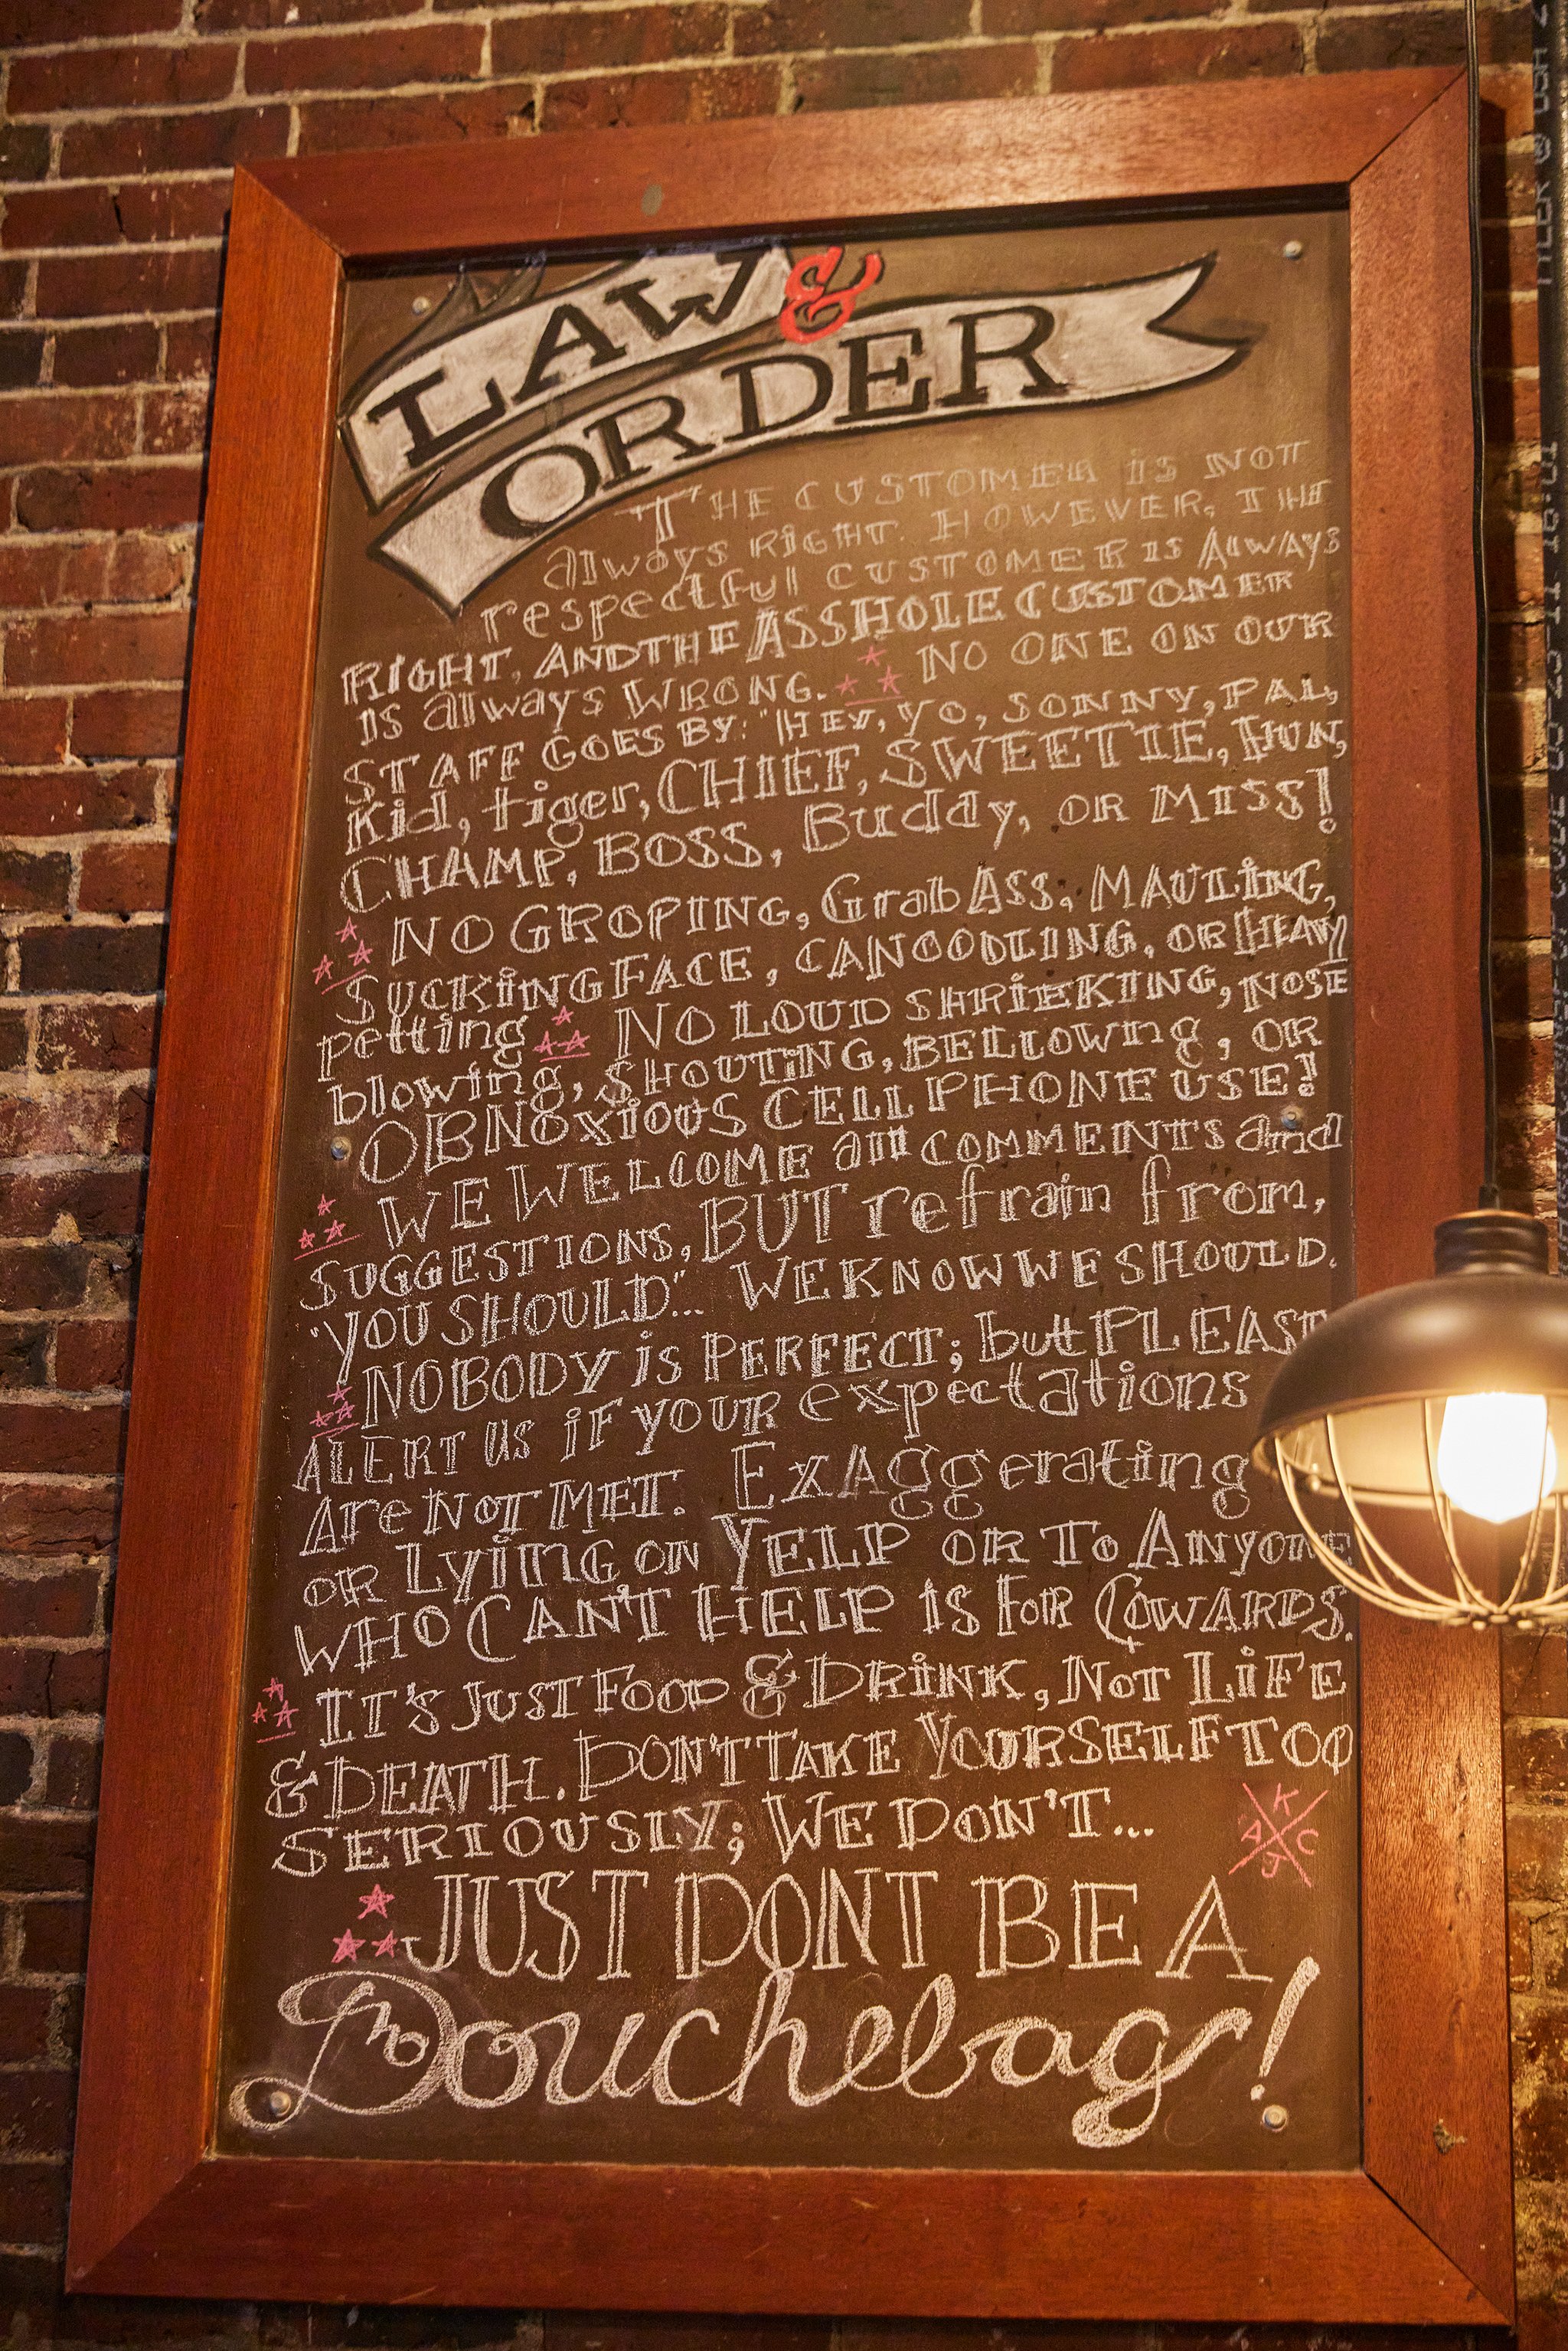 LAW &
ORDER
THE CUSTOMER IS NOT
always RIGHT. HOWEVER, THE
respectful CUSTOMER IS AlWAYS
RIGHT, AND THE ASSHOLE CUSTOMER
is always WRONG. NO ONE ON OUR
STAFF GOES BY: "HEY, YO, SONNY, PAL,
Kid, tiger, CHIEF, SWEETIE, HUN,
CHAMP, BOSS, Buddy, OR MISS!
NO GROPING, Grab ASS, MAULING,
SUCKING FACE, CANOODLING, OR HEAVY
petting NO LOUD SHRIEKING, NOSE
blowing, SHOUTING, BELLOWng, OR
OBNOXIOUS CELL PHONE USE!
WE WELCOME all COMMENTS and
SUGGESTIONS, BUT refrain from,
"YOU SHOULD"... WE KNOW WE SHOULD.
NOBODY is PERFECT; butt PLEASE
ALERT US iF YOUR expectations
Are NOT MET. ExAggerating
OR LyING ON YELP OR To ANYONE
WHO CAN'T HELP IS FOR COWARDS.
IT'S JUST FOOD & DRiNK, NOT LiFE
& DEATH. DON'T TAKE YOURSELF TOO
SERIOUSLY; WE DON'T...
K
A C
J
JUST DONT BE A
Douchebag!